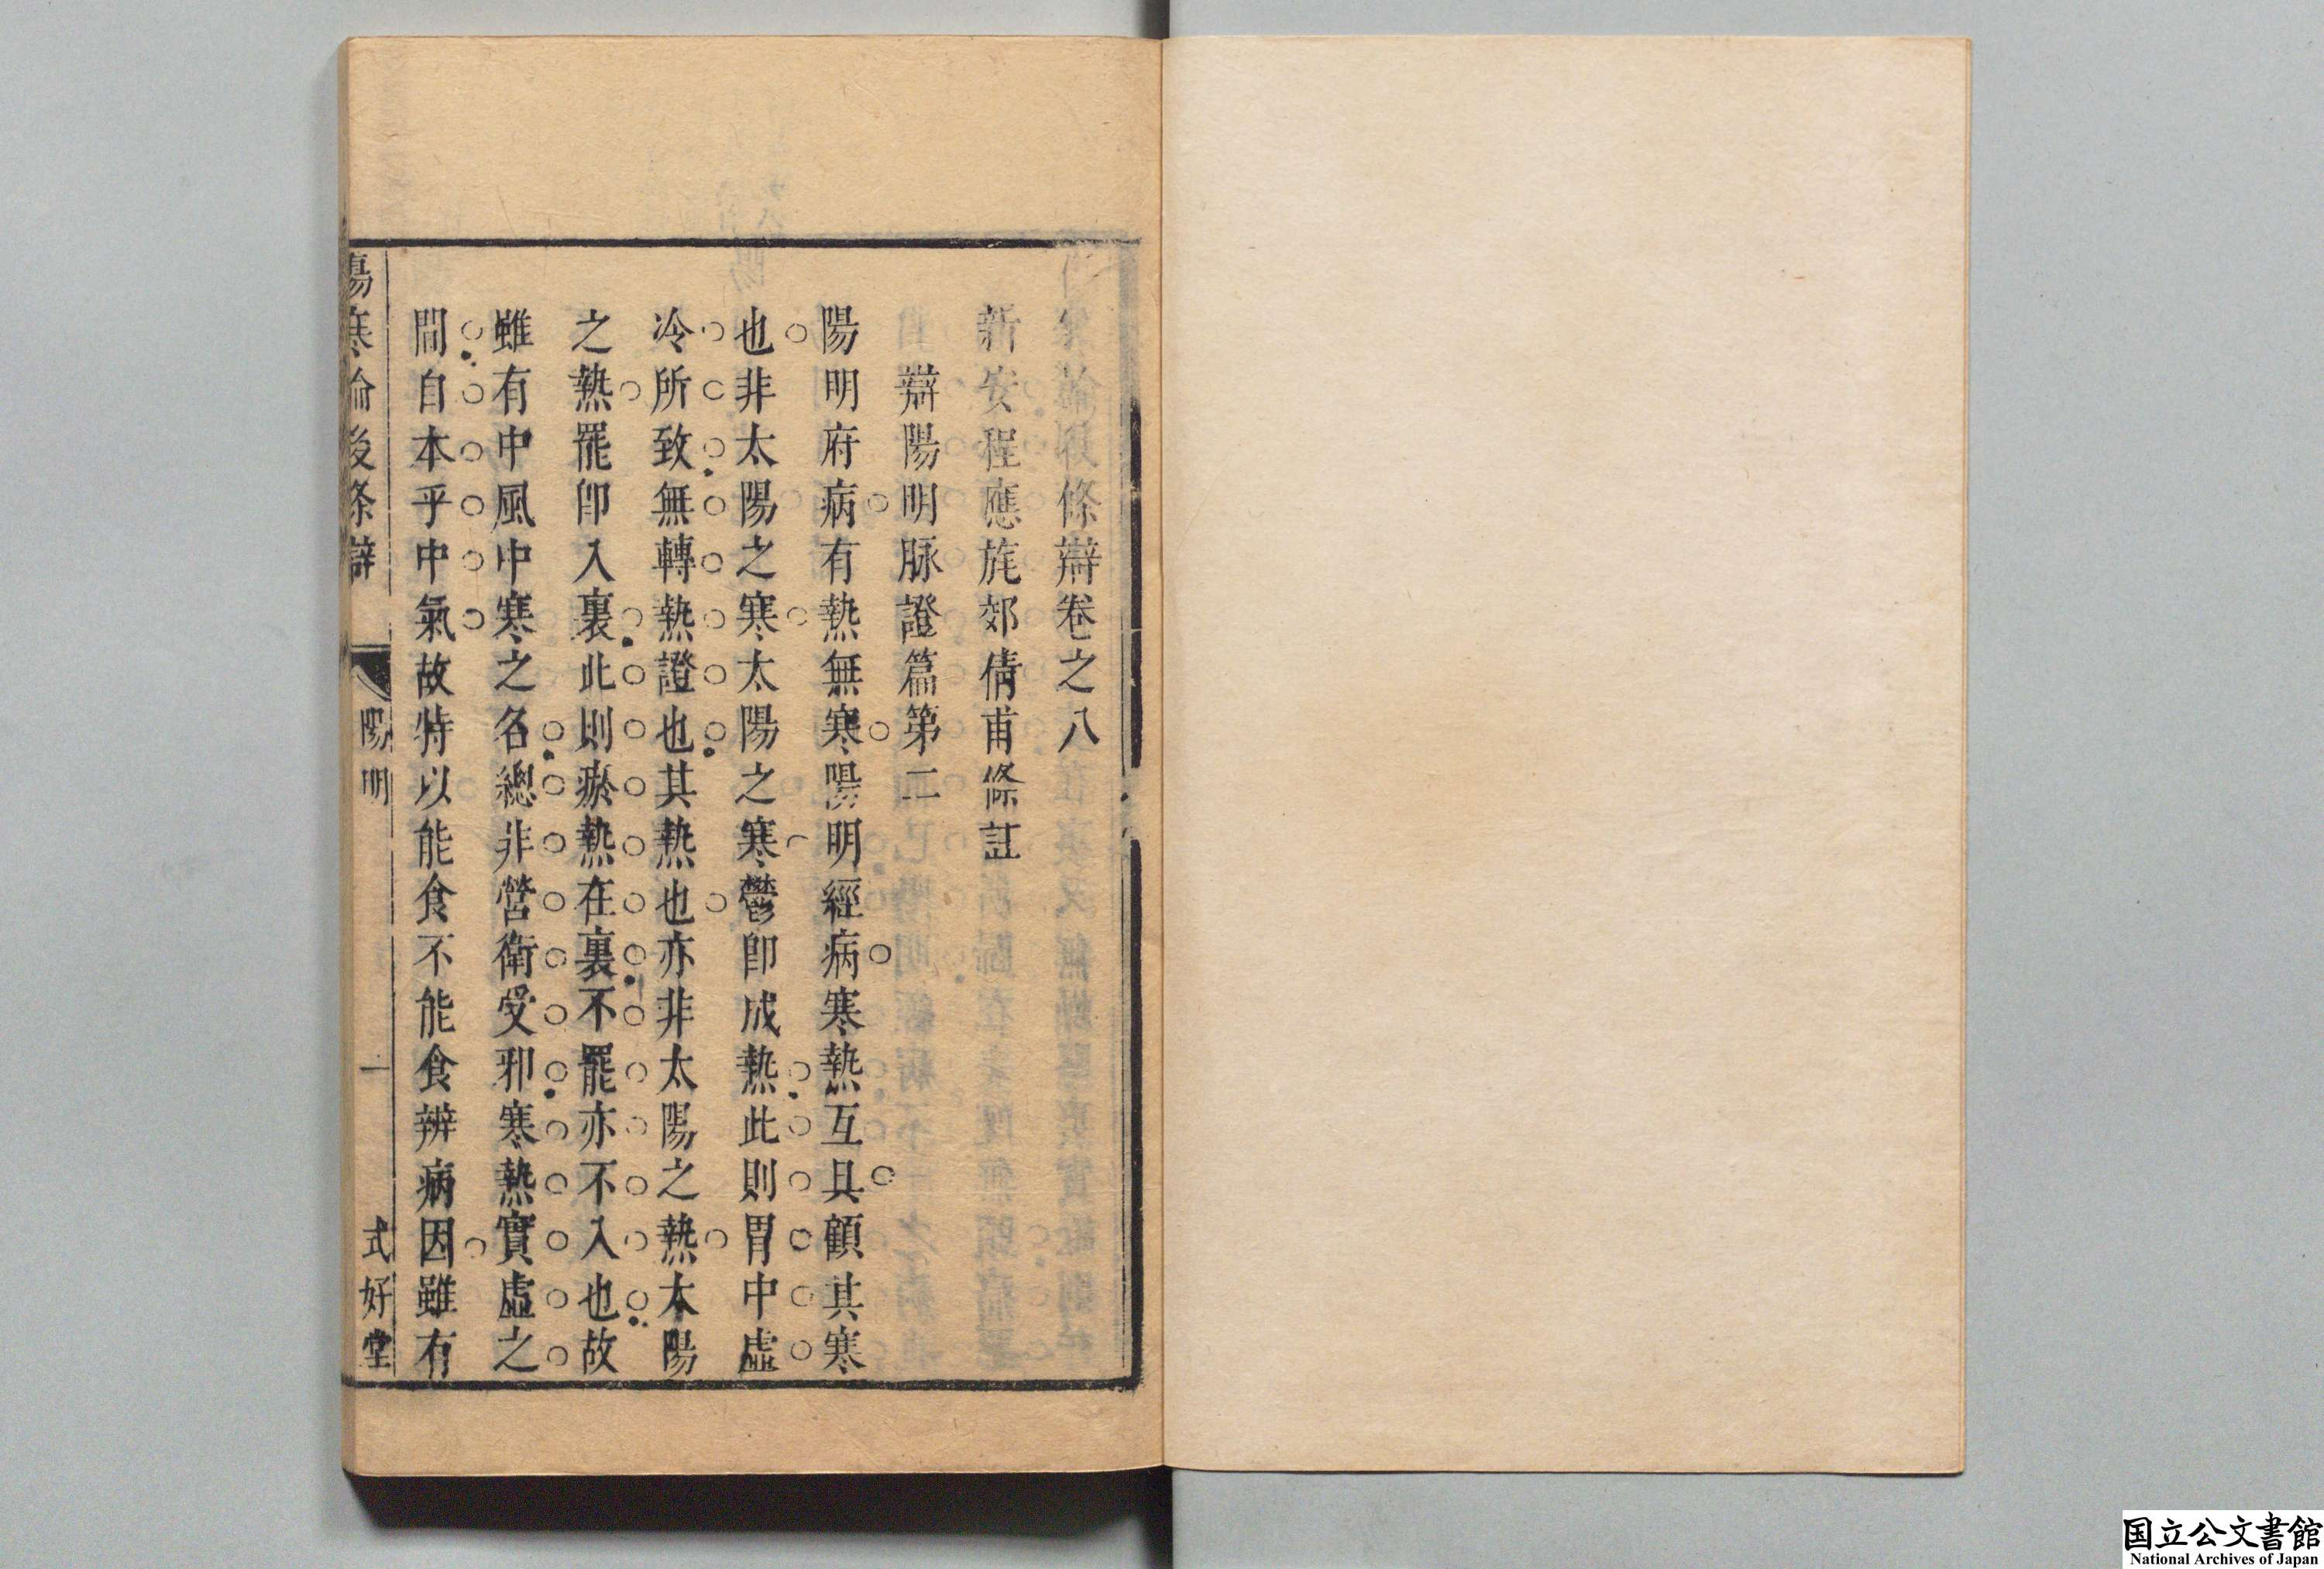 寒論後條辯卷之八
新安程應旄郊倩甫條註
辯陽明脉證篇第二
陽明府病有熱無寒陽明經病寒熱互具顧其寒
也非太陽之寒太陽之寒鬱即成熱此則胃中虛
冷所致無轉熱證也其熱也亦非太陽之熱太陽
之熱罷即入裏此則瘀熱在裏不罷亦不入也故
雖有中風中寒之名總非營衛受邪寒熱實虛之
間自本乎中氣故特以能食不能食辨病因雖有
傷寒論後条辯
陽明
一
式好堂
国立公文書館
National Archives of Japan